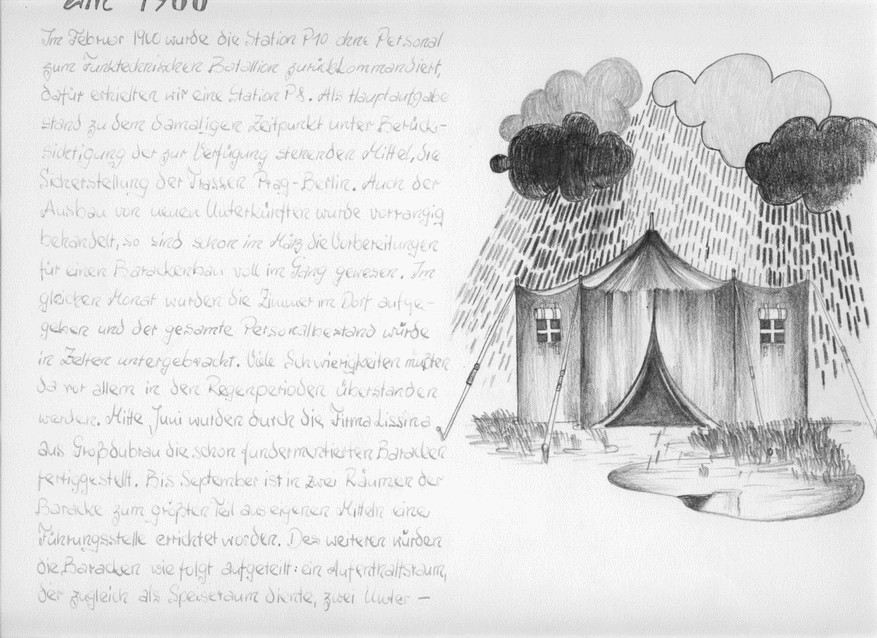 1960
Im Februar 1960 wurde die Station P10 ohne Personal
zum Funktechnischen Batallion zurückkommandiert,
dafür erhielten wir eine Station P8. Als Hauptaufgabe
stand zu dem damaligen Zeitpunkt unter Berück-
sichtigung der zur Verfügung stehenden Mittel, die
Sicherstellung der Trassen Prag-Berlin. Auch der
Ausbau von neuen Unterkünften wurde vorrangig
behandelt, so sind schon im März die Vorbereitungen
für einen Barackenbau voll im Gang gewesen. Im
gleichen Monat wurden die Zimmer im Dorf aufge-
geben und der gesamte Personalbestand würde
in Zelten untergebracht. Viele Schwierigkeiten mußten
da vor allem in den Regenperioden überstanden
werden. Mitte Juni wurden durch die Firma Lissina
aus Großdubrau die schon fundermentierten Baracken
fertiggestellt. Bis September ist in zwei Räumen der
Baracke zum größten Teil aus eigenen Mitteln eine
Führungsstelle errichtet worden. Des weiteren würden
die Baracken wie folgt aufgeteilt: ein Aufenthaltsraum,
der zugleich als Speiseraum diente, zwei Unter-